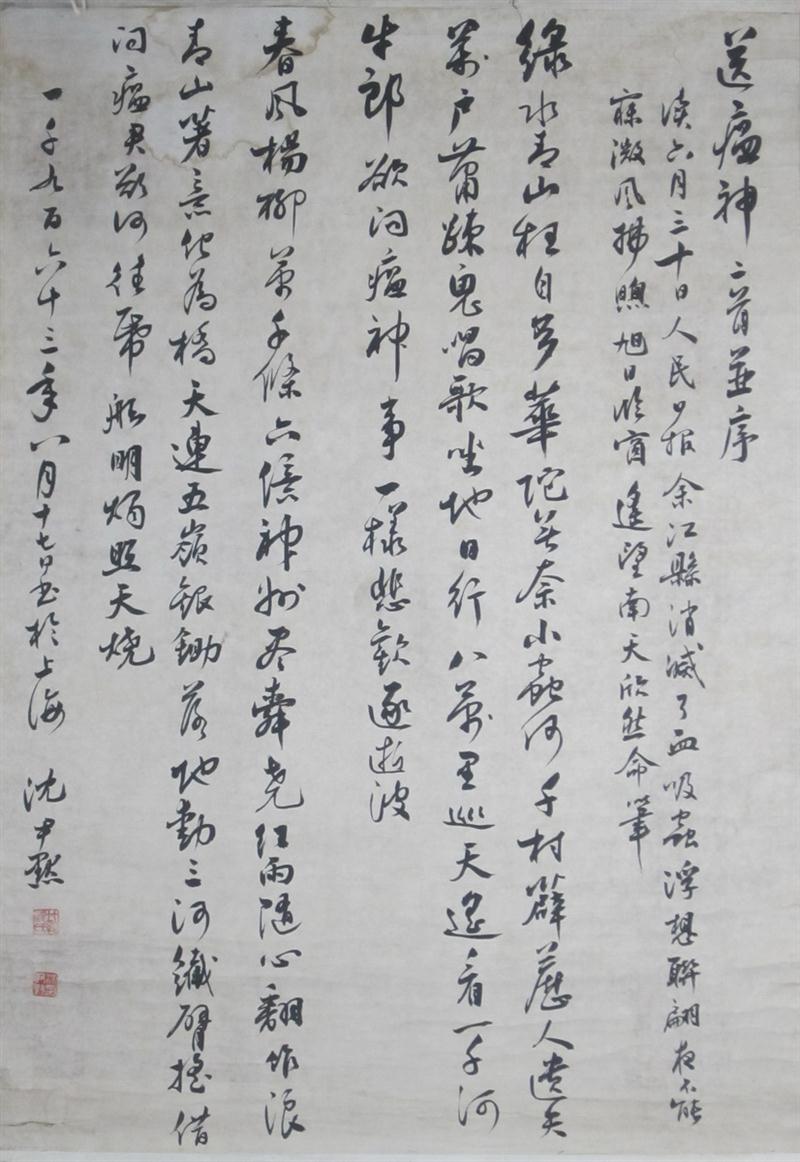 送瘟神二首並序
读六月三十日人民日报余江縣消滅了血吸蟲浮想聯翩夜不能
寐微风拂曉旭日临窗遥望南天欣然命筆
綠水青山枉自多華陀无奈小蟲何千村薜荔人遗矢
萬户蕭疎鬼唱歌坐地日行八萬里巡天遥看一千河
牛郎欲问瘟神事一樣悲歡逐逝波
春风楊柳萬千條六億神州尽舜尧红雨随心翻作浪
青山著意化為橋天連五嶺銀鋤落地動三河鐵臂摇借
问瘟君欲何往帋船明烛照天燒
一千九百六十三年八月十七日书於上海 沈尹默